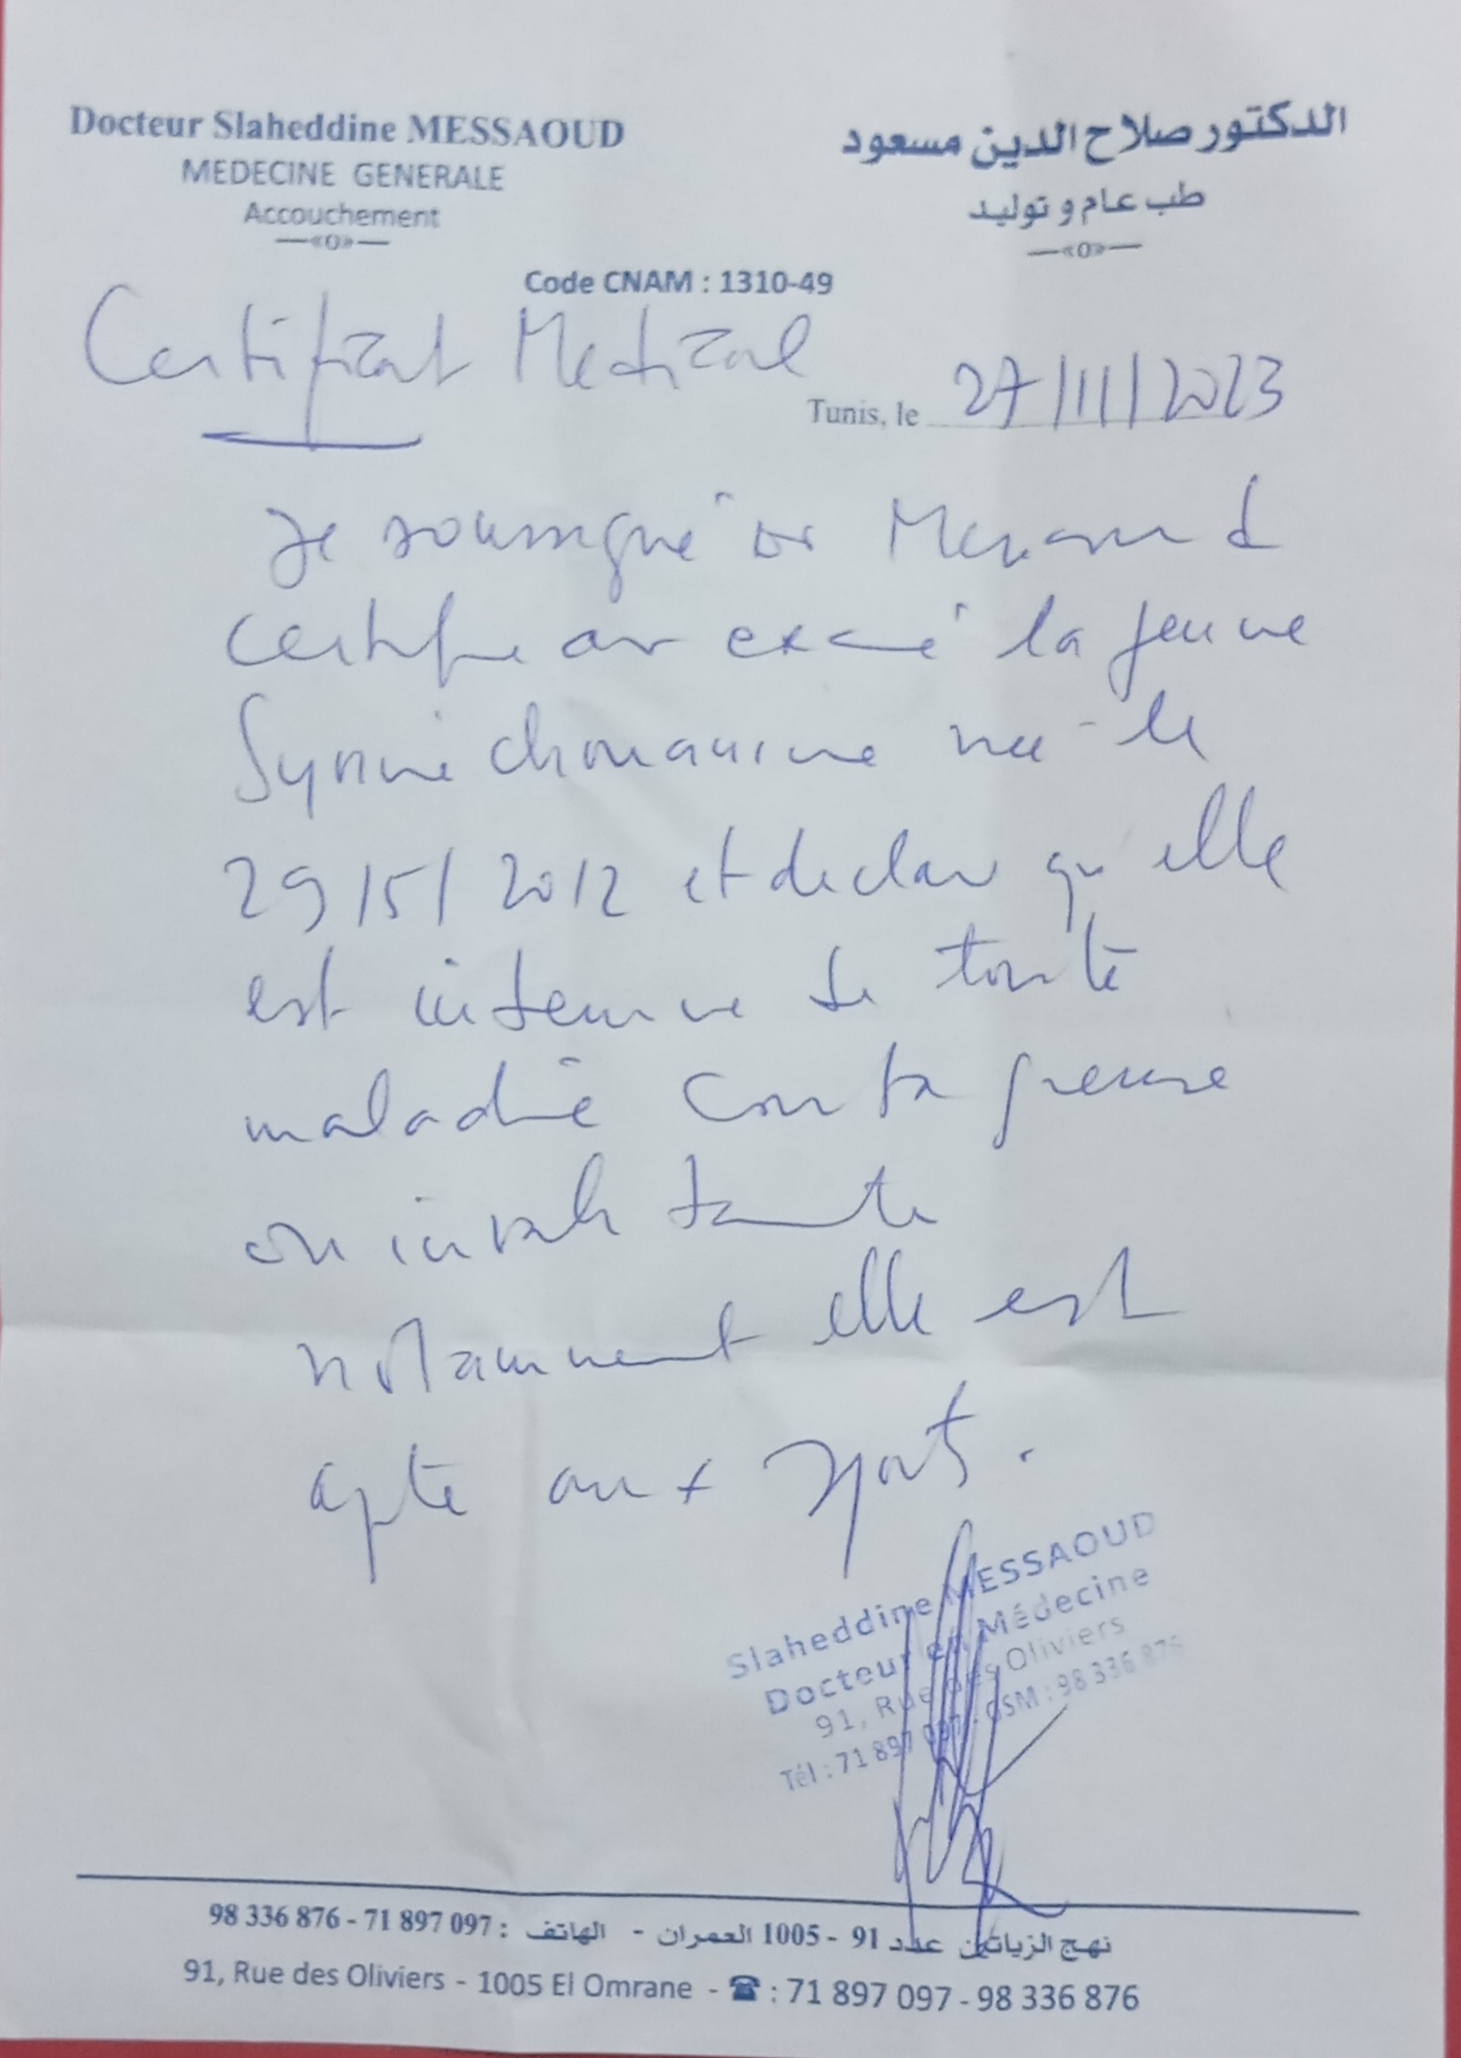 Docteur Slaheddine MESSAOUD
MEDECINE GENERALE
Accouchement
—«0»—
الدكتور صلاح الدين مسعود
طب عام و توليد
—«0»—
Code CNAM : 1310-49
Certificat Medical
Tunis, le 27/11/2023
Je soussigné Dr Messaoud
certifie avoir examiné la jeune
née le
29/5/2012 et declare qu'elle
est indemne de toute
maladie contagieuse
ou invalidante
notamment elle est
apte aux sports.
Slaheddine MESSAOUD
Docteur en Médecine
91, Rue des Oliviers
Tél : 71 897 097 - GSM : 98 336 876
نهج الزياتين عدد 91 - 1005 العمران - الهاتف : 71 897 097 - 98 336 876
91, Rue des Oliviers - 1005 El Omrane - ☎ : 71 897 097 - 98 336 876